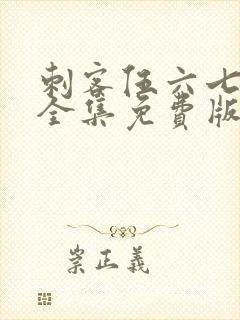 刺客伍六七
全集免费版
崇正義